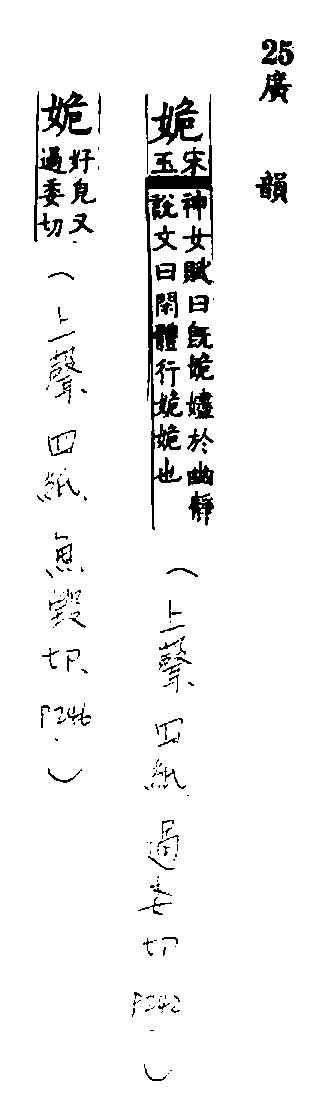 25廣韻
姽
宋玉
神女賦曰旣姽嫿於幽靜
說文曰閑體行姽姽也
（上聲 四紙 過委切 P242.）
姽
好皃又
過委切
（上聲 四紙 魚毀切 P246.）